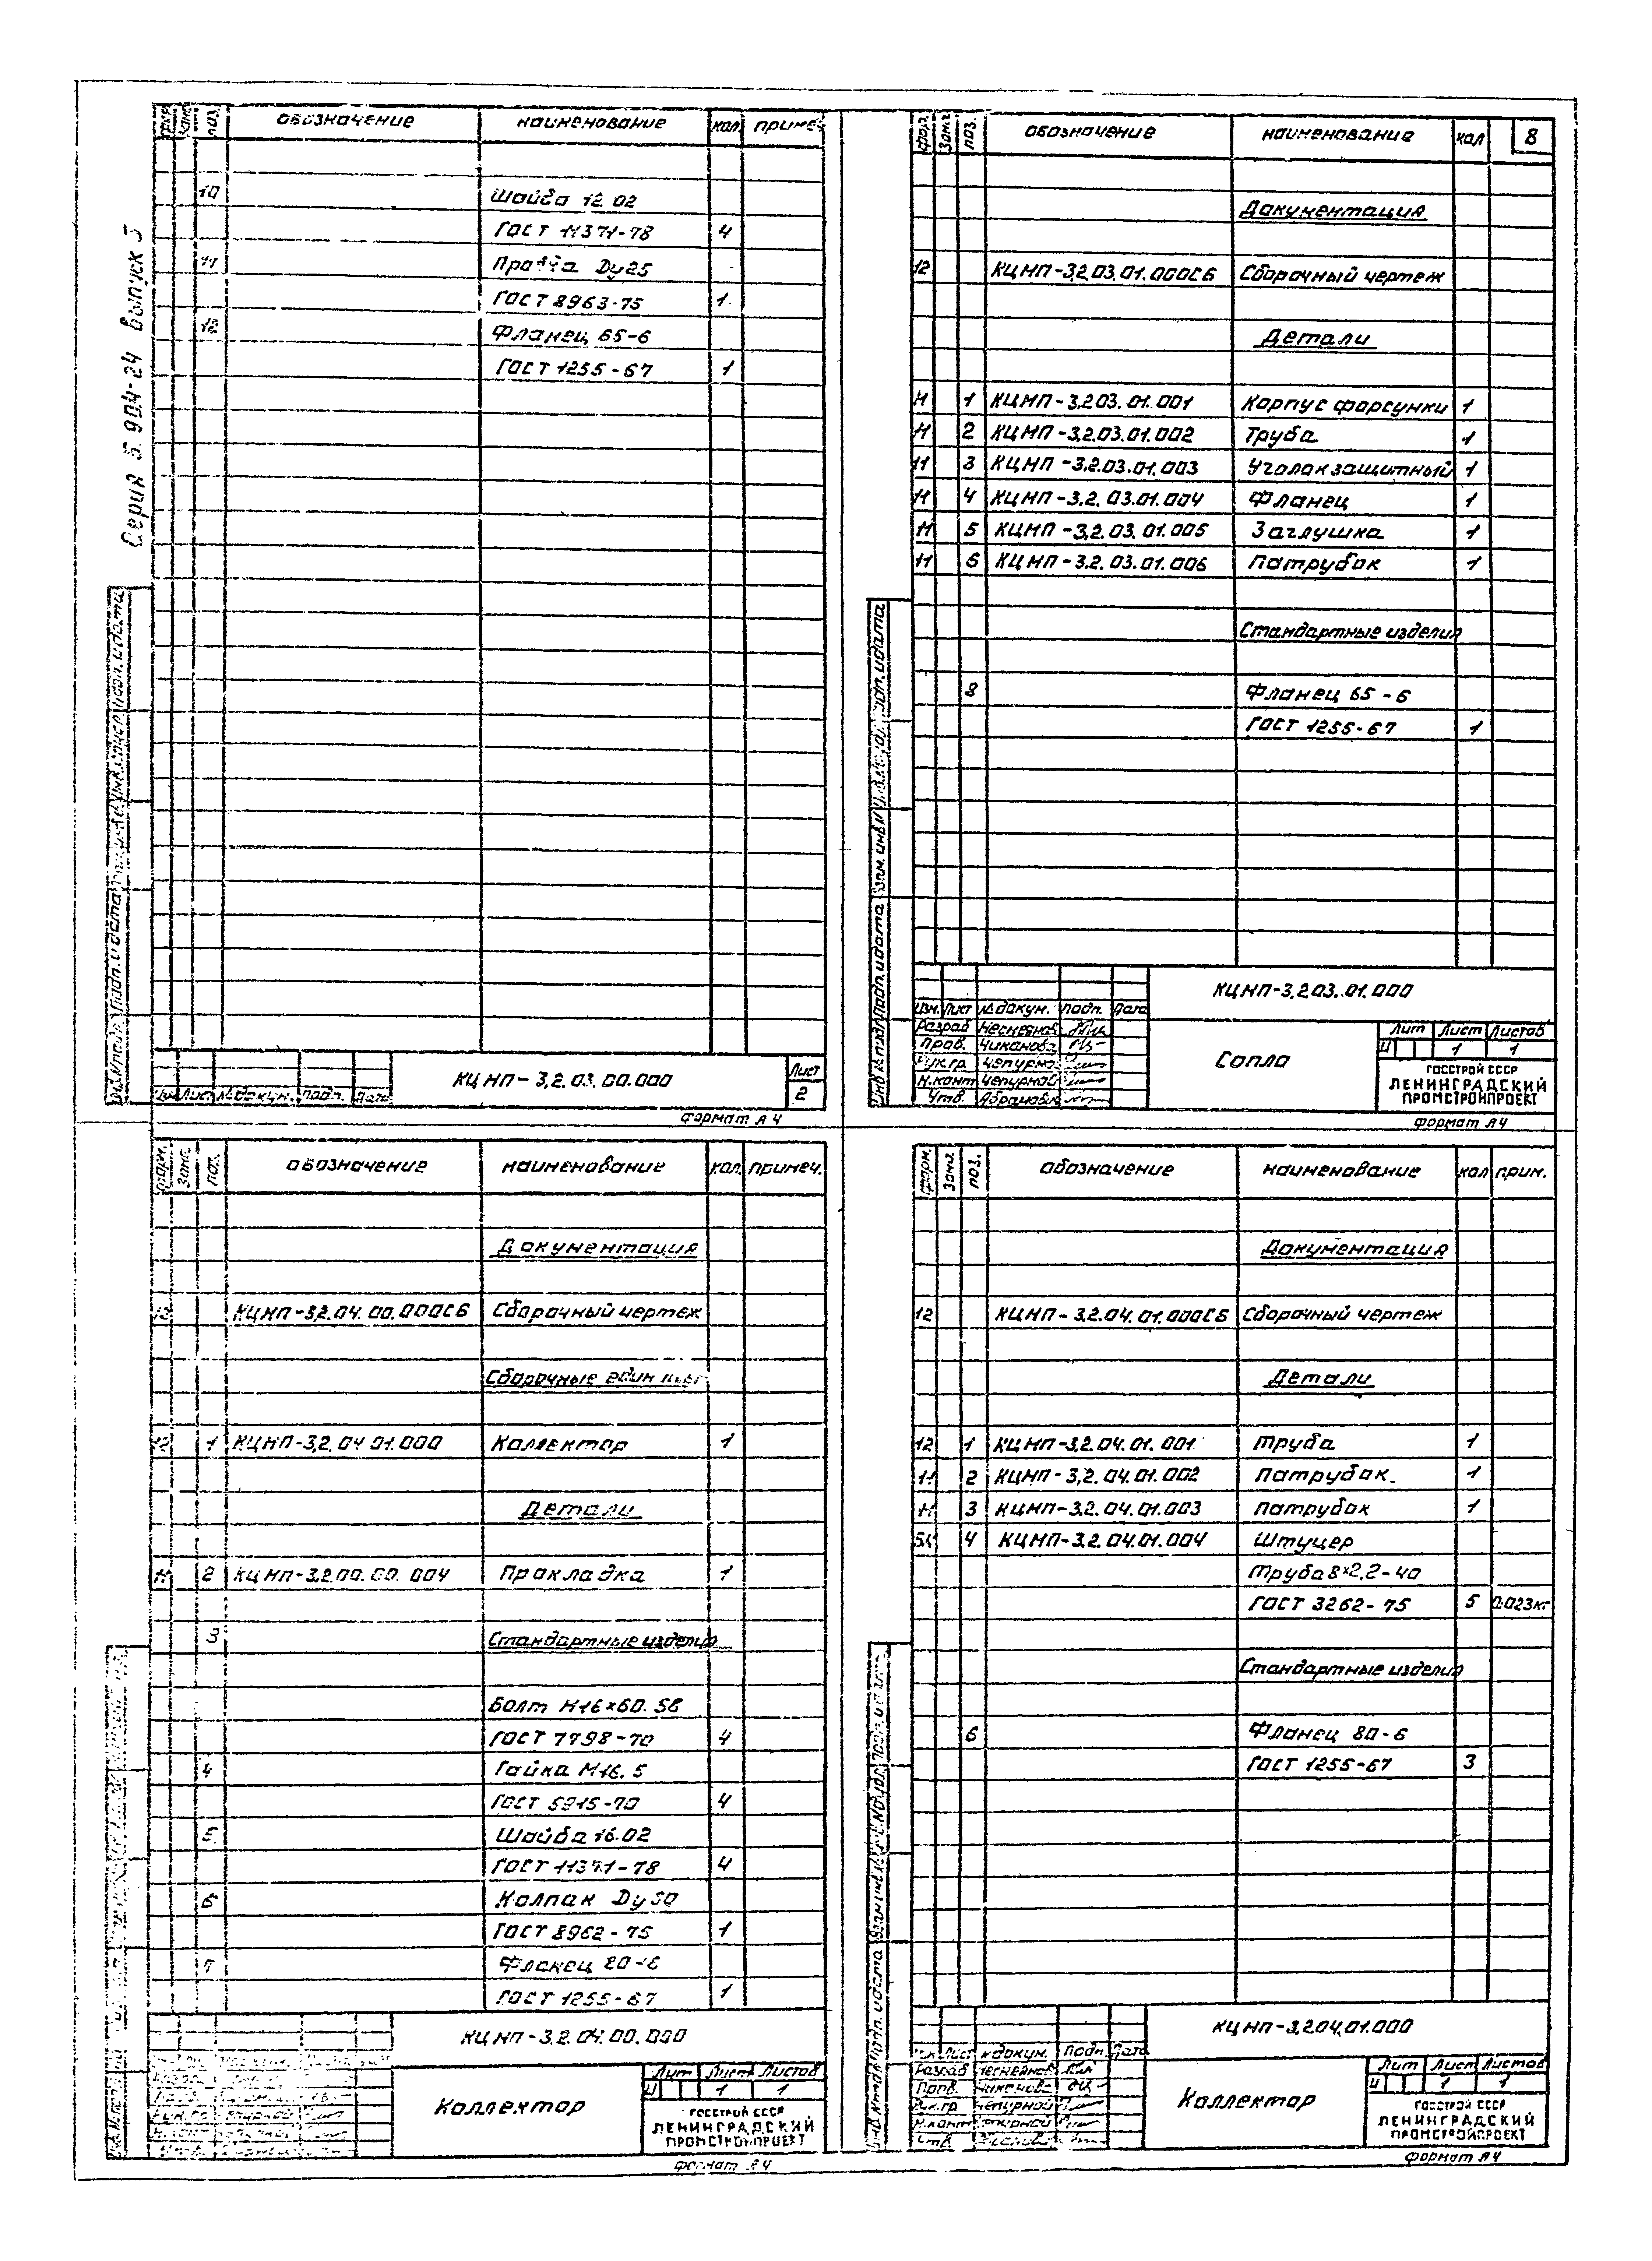 Серия 5.904-24 выпуск 3
поз. обозначение наименование кол. примеч
10 Шайба 12.02
ГОСТ 11371-78 4
11 Пробка Dу25
ГОСТ 8963-75 1
12 Фланец 65-6
ГОСТ 1255-67 1
Лист № докум. подп. Дата
КЦНП-3,2.03.00.000
Лист
2
формат А4
8
фор. Зона поз. обозначение наименование кол
Документация
12 КЦНП-3,2.03.01.000СБ Сборочный чертеж
Детали
11 1 КЦНП-3,2.03.01.001 Корпус форсунки 1
11 2 КЦНП-3,2.03.01.002 Труба 1
11 3 КЦНП-3,2.03.01.003 Уголок защитный 1
11 4 КЦНП-3,2.03.01.004 Фланец 1
11 5 КЦНП-3,2.03.01.005 Заглушка 1
11 6 КЦНП-3,2.03.01.006 Патрубок 1
Стандартные изделия
8 Фланец 65-6
ГОСТ 1255-67 1
КЦНП-3,2.03.01.000
Изм. Лист № докум. подп. Дата
Разраб
Пров. Чиканова
Рук.гр Чепурной
Н.конт Чепурной
Утв.
Сопла
Лит Лист Листов
И 1 1
ГОССТРОЙ СССР
ЛЕНИНГРАДСКИЙ
ПРОМСТРОЙПРОЕКТ
формат А4
форм. Зона поз. обозначение наименование кол. примеч.
Документация
12 КЦНП-3,2.04.00.000СБ Сборочный чертеж
Сборочные единицы
12 1 КЦНП-3,2.04.01.000 Коллектор 1
Детали
11 2 КЦНП-3,2.00.00.004 Прокладка 1
3 Стандартные изделия
Болт М16×60.58
ГОСТ 7798-70 4
4 Гайка М16.5
ГОСТ 5915-70 4
5 Шайба 16.02
ГОСТ 11371-78 4
6 Колпак Dу50
ГОСТ 8962-75 1
7 Фланец 80-6
ГОСТ 1255-67 1
КЦНП-3,2.04.00.000
Коллектор
Лит Лист Листов
И 1 1
ГОССТРОЙ СССР
ЛЕНИНГРАДСКИЙ
ПРОМСТРОЙПРОЕКТ
формат А4
форм. Зона поз. обозначение наименование кол прим.
Документация
12 КЦНП-3,2.04.01.000СБ Сборочный чертеж
Детали
12 1 КЦНП-3,2.04.01.001 Труба 1
11 2 КЦНП-3,2.04.01.002 Патрубок 1
11 3 КЦНП-3,2.04.01.003 Патрубок 1
БЧ 4 КЦНП-3,2.04.01.004 Штуцер
Труба 8×2,2-40
ГОСТ 3262-75 5 0.023кг
Стандартные изделия
6 Фланец 80-6
ГОСТ 1255-67 3
КЦНП-3,2.04.01.000
Лист № докум. подп. Дата
Разраб
Пров. Чиканова
Рук.гр Чепурной
Н.конт Чепурной
Утв.
Коллектор
Лит Лист Листов
И 1 1
ГОССТРОЙ СССР
ЛЕНИНГРАДСКИЙ
ПРОМСТРОЙПРОЕКТ
формат А4